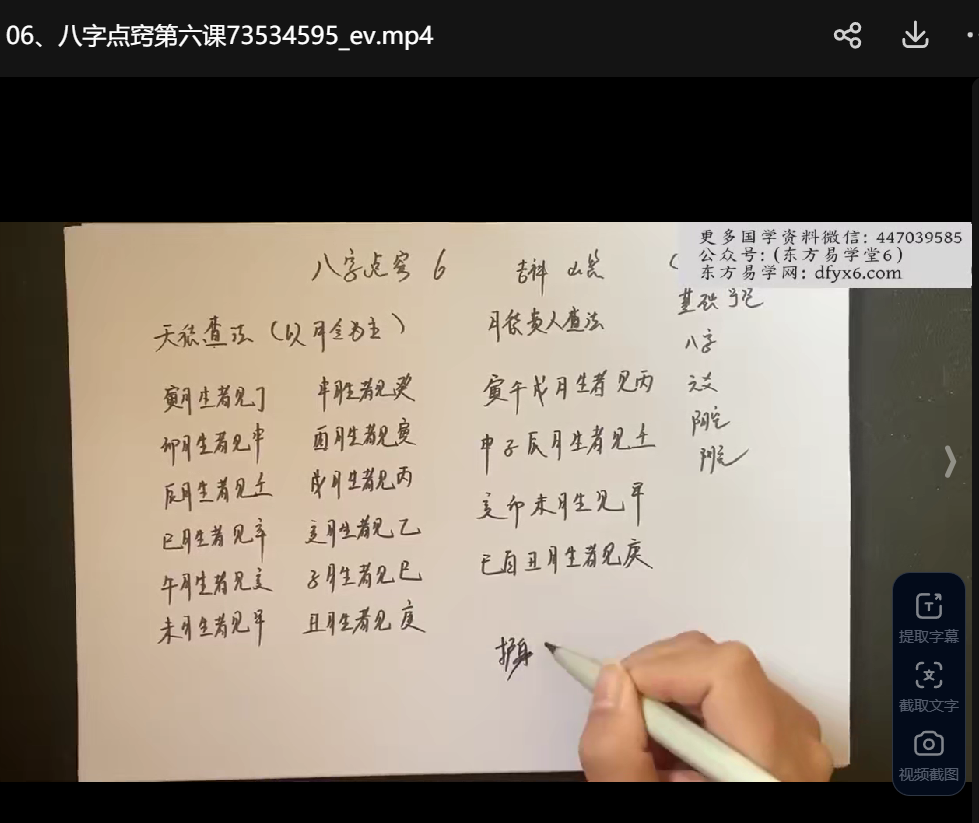 06、八字点窍第六课73534595_ev.mp4
更多国学资料微信：447039585
公众号：(东方易学堂6)
东方易学网：dfyx6.com
八字点窍 6
天德查法（以月令为主）
寅月生者见丁 申月生者见癸
卯月生者见申 酉月生者见寅
辰月生者见壬 戌月生者见丙
巳月生者见辛 亥月生者见乙
午月生者见亥 子月生者见巳
未月生者见甲 丑月生者见庚
月德贵人查法
寅午戌月生者见丙
申子辰月生者见壬
亥卯未月生见甲
巳酉丑月生者见庚
护身
基础
八字
六爻
阴宅
阳宅
提取字幕
截取文字
视频截图